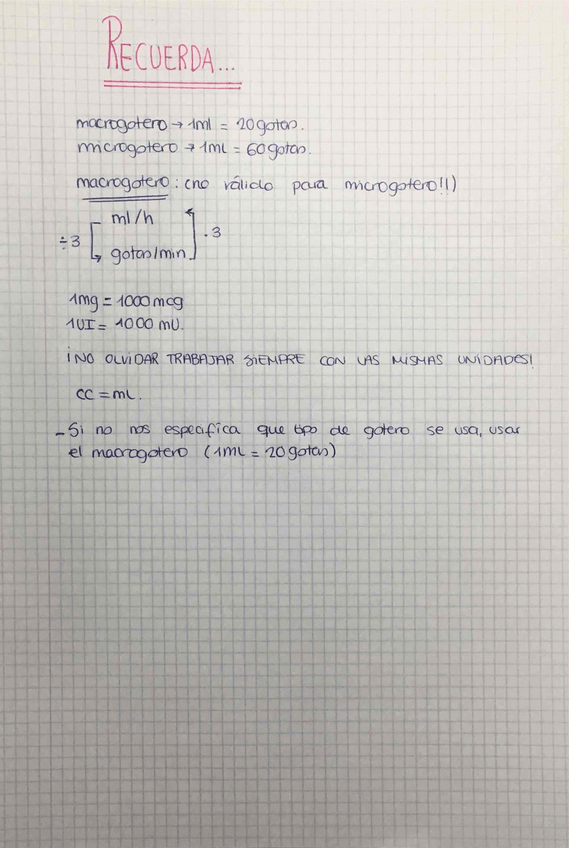 RECUERDA...
macrogotero → 1ml = 20gotas.
microgotero → 1ml = 60gotas.
macrogotero: (no válido para microgotero!!)
ml/h
÷3 . 3
gotas/min
1mg = 1000mcg
1UI = 1000 mU.
¡NO OLVIDAR TRABAJAR SIEMPRE CON LAS MISMAS UNIDADES!
CC = mL.
- Si no nos especifica que tipo de gotero se usa, usar
el macrogotero (1ML = 20gotas)